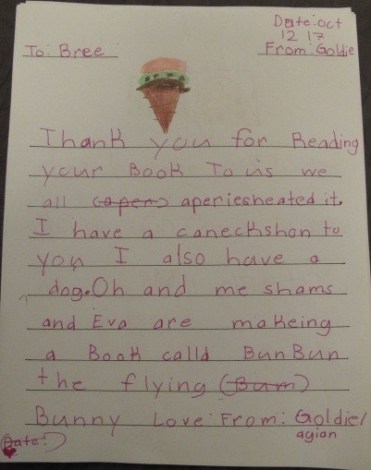 Date: oct
12 17
To: Bree
From: Goldie
Thank you for Reading
your Book To us we
all (apen) aperiesheated it.
I have a caneckshon to
you I also have a
dog. Oh and me shams
and Eva are makeing
a Book calld BunBun
the flying (Bum)
Bunny Love: From: Goldie/
agian
Date: